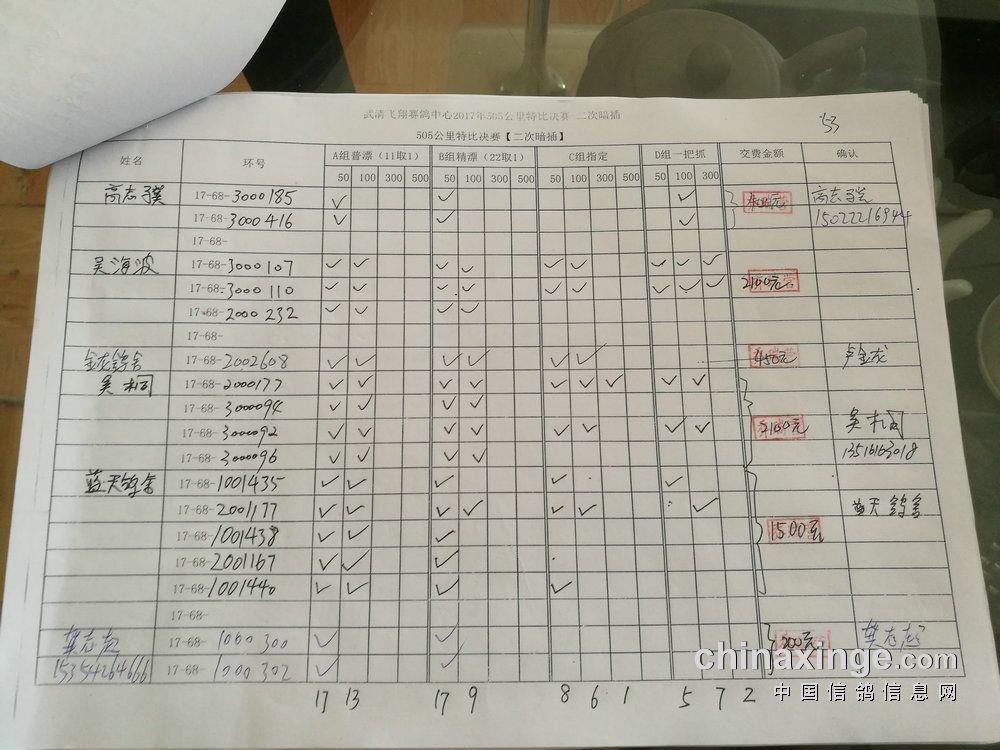 武清飞翔赛鸽中心2017年505公里特比决赛 二次暗插
505公里特比决赛【二次暗插】 53
姓名 环号 A组普漂（11取1） B组精漂（22取1） C组指定 D组一把抓 交费金额 确认
50 100 300 500 50 100 300 500 50 100 300 500 50 100 300
17-68-3000185 ✓ ✓ ✓
17-68-3000416 ✓ ✓ ✓ 15022216944
17-68-
吴海波 17-68-3000107 ✓ ✓ ✓ ✓ ✓ ✓ ✓ ✓ ✓
17-68-3000110 ✓ ✓ ✓ ✓ ✓ ✓ ✓ ✓ ✓ 2100元
17-68-2000232 ✓ ✓ ✓ ✓
17-68-
17-68-2002608 ✓ ✓ ✓ ✓ ✓ ✓ 450元
17-68-2000177 ✓ ✓ ✓ ✓ ✓ ✓ ✓ ✓ ✓
17-68-3000094 ✓ ✓ ✓ ✓
17-68-3000092 ✓ ✓ ✓ ✓ ✓ ✓ ✓ ✓ 2100元
17-68-3000096 ✓ ✓ ✓ ✓ 13516163018
蓝天鸽舍 17-68-1001435 ✓ ✓ ✓ ✓ ✓
17-68-2001177 ✓ ✓ ✓ ✓ ✓ ✓ ✓ 蓝天鸽舍
17-68-1001438 ✓ ✓ ✓ 1500元
17-68-2001167 ✓ ✓ ✓
17-68-1001440 ✓ ✓ ✓ ✓
17-68-
17-68-1000300 ✓ ✓ 200元
15354264666 17-68-1000302 ✓ ✓
17 13 17 9 8 6 1 5 7 2
chinaxinge.com
中国信鸽信息网